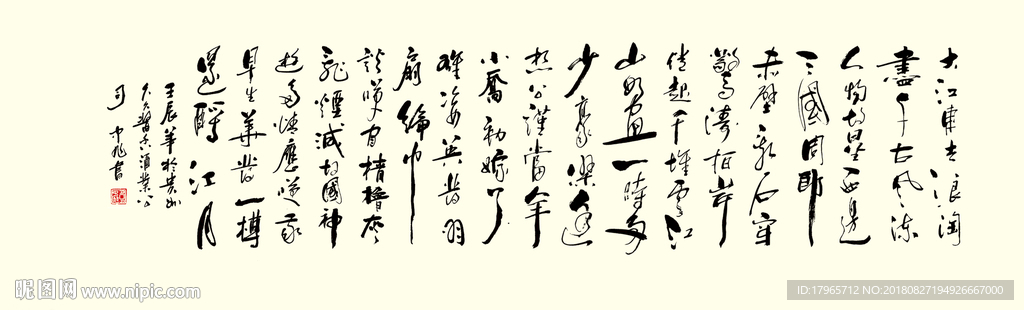 大江東去浪淘
盡千古風流
人物故壘西邊
三國周郎
赤壁亂石穿
驚濤拍岸
捲起千堆雪江
山如畫一時多
少豪傑遙
想公謹當年
小喬初嫁了
雄姿英發羽
扇綸巾
談笑間檣櫓灰
飛煙滅故國神
遊多情應笑我
早生華發一樽
還酹江月
壬辰年於貴州
醬香酒業公
司 書
昵图网 www.nipic.com
ID:17965712 NO:20180827194926667000